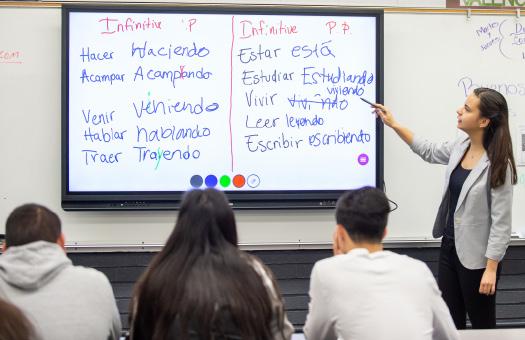 Infinitive P
Hacer Haciendo
Acampar Acampando
Venir Viniendo
Hablar hablando
Traer Trayendo
Infinitive P.P.
Estar está
Estudiar Estudiando
viviendo
Vivir
Leer leyendo
Escribir escribiendo